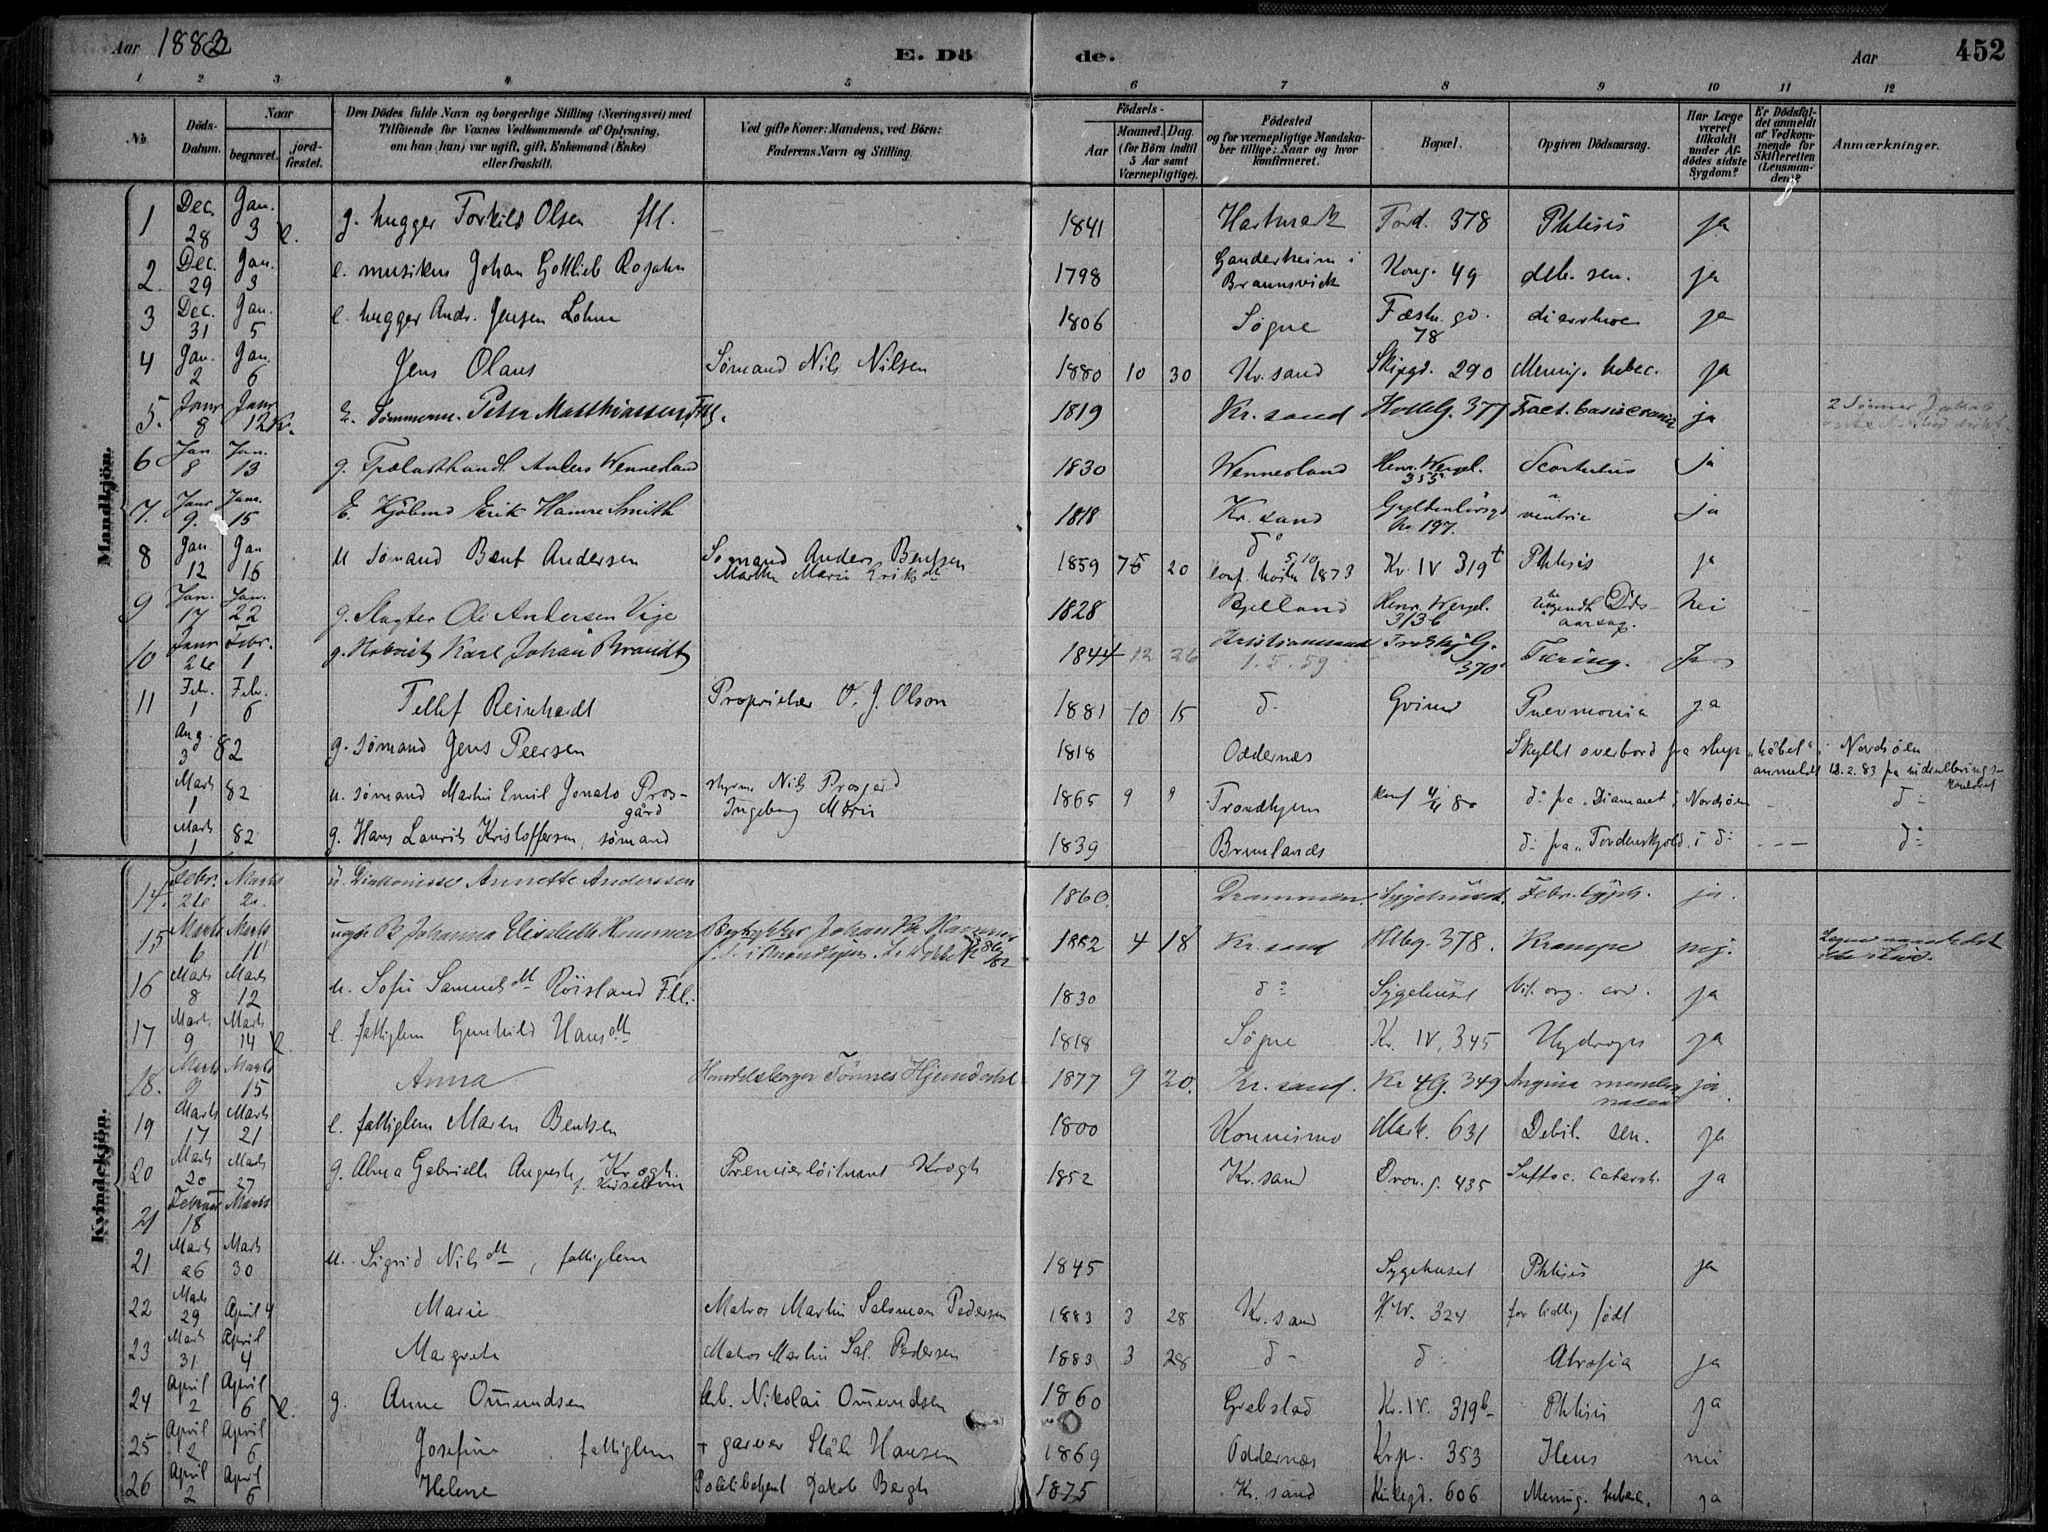 Aar 1883 E. Dö de. Aar 452
1 2 3 4 5 6 7 8 9 10 11 12
No Döds-Datum. Naar begravet. jord-fæstet. Den Dödes fulde Navn og borgerlige Stilling (Næringsvei) med Tilföiende for Voxnes Vedkommende af Oplysning, om han (hun) var ugift, gift, Enkemand (Enke) eller fraskilt. Ved gifte Koner: Mandens, ved Börn: Faderens Navn og Stilling. Födsels- Aar Maaned. Dag. (for Börn indtil 5 Aar samt Værnepligtige). Födested og for værnepligtige Mandskaber tillige: Naar og hvor konfirmeret. Bopæl. Opgiven Dödsaarsag. Har Læge været tilkaldt under Afdödes sidste Sygdom? Er Dödsfaldet anmeldt af Vedkommende for Skifteretten (Lensmanden)? Anmærkninger.
Mandkjön.
1 Dec. 28 Jan. 3 g. hugger Torkild Olsen fll. 1841 Hartmark Tord. 378 Phtisis ja
2 Dec. 29 Jan. 3 e. musikus Johan Gottlieb Rojahn 1798 Ganderheim i Braunsvick Kong. 49 deb. sen. ja
3 Dec. 31 Jan. 5 e. hugger Andr. Jensen Lohne 1806 Søgne Fæstn. gd. 78 diarrhoe ja
4 Jan. 2 Jan. 6 Jens Olaus Sømand Nils Nilsen 1880 10 30 Kr.sand Skipgd. 290 Mening. tuberc. ja
5. Janr 8 Janr 12 E. Tømmerm. Peter Matthiassen, Fll. 1819 Kr.sand Holbg. 377 Fract. basis cranii ja 2 Sønner
6 Jan 8 Jan. 13 g. Trælasthandl. Anders Wennesland 1830 Wennesland Henr. Wergel. 355 Scorbutus ja
7. Janr 9. Janr. 15 E. Kjøbmd Erik Hamre Smith 1818 Kr.sand Gyldenløvsgd No 197. ja
8 Jan 12 Jan 16 u Sømand Bent Andersen Sømand Anders Bentsen Marthe Marie Eriksdtr 1859 20 do conf. høsten 5/10 1873 Kr. IV 319 Phtisis ja
9 Jan. 17 Jan. 22 g. Slagter Ole Andersen Vige 1828 Bjelland Henr. Wergel. 313b Dødsaarsag. nei
10 Janr 26 Febr. 1 g. Karl Johan Brandt 1844 12 26 Kristiansund 1.5.59 370 Tæring. Ja
11 Feb. 1 Feb. 6 Tellef Reinhardt Proprietær O. J. Olsen 1881 10 15 do Grim Pnevmonia ja
Aug. 3 82 g. sømand Jens Peersen 1818 Oddernes Skyllet overbord fra skup "Håbet" i Nordsøen
anmeldt 12.2.83 fra
Marts 1 82 u. sømand Martin Emil Jonato Prosgård styrm. Nils Prosgård Ingeborg Marie 1865 9 9 Trondhjem konf 80 do fra "Diamant" i Nordsøen - do
Marts 1 82 g. Hans Laurits Kristoffersen, sømand 1839 Brunlanes do fra "Tordenskjold" i do - - do
Kvindekjön.
14. Febr. 26 Marts 2. u. Diakonisse Annette Anderssen 1860. Drammen. Sygehuset. Febr. typh. ja.
15 Marts 6 Marts 11 Johanna Elisabeth Hammer Johan Hammer 1882 4 18 Kr.sand Hlbg. 378. Krampe nej.
16 Marts 8 Marts 12 u. Sofie Samuelsdtr Röisland Fll. 1830 do Sygehuset Vit. org. cord. ja
17 Marts 9 Marts 14 e. fattiglem Gunhild Hansdtr 1818 Søgne Kr. IV. 345 Hydrops ja
18. Marts 9 Marts 15 Anna Handelsborger Tønnes Hjemdahl 1877 9 20. Kr.sand. Kr 4G. 349 Angina membranacea ja.
19 Marts 17 Marts 21 e. fattiglem Maren Bentsen 1800 Konnismo Mark. 631 Debil. sen. ja
20 Marts 20 Marts 27 g. Alma Gabrielle Auguste Krogh. Premierløitnant Krogh 1852 Kr.sand Dron. g. 435 Suffoc. catarrh. ja
21 Februar 18 Marts
21 Marts 26 Marts 30 u. Sigrid Nilsdtr, fattiglem 1845 Sygehuset Phtisis ja
22 Marts 29 April 4 Marie Matros Martin Salomon Pedersen 1883 3 28 Kr.sand 324 for tidlig født
23 Marts 31 April 4 Margrete Matros Martin Sal. Pedersen 1883 3 28 do do Atrofia ja
24 April 2 April 6 g. Anne Omundsen Arb. Nikolai Omundsen 1860 Grebstad Kr. IV. 319b Phtisis ja
25 April 2 April 6 Josefine fattiglem + garver Ståle Hansen 1869 Oddernæs Krp. 353 Ileus nei
26 April 2 April 6 Helene Politibetjent Jakob Bergh 1875 Kr.sand Kirkegd. 606 Mening. tuberc. ja